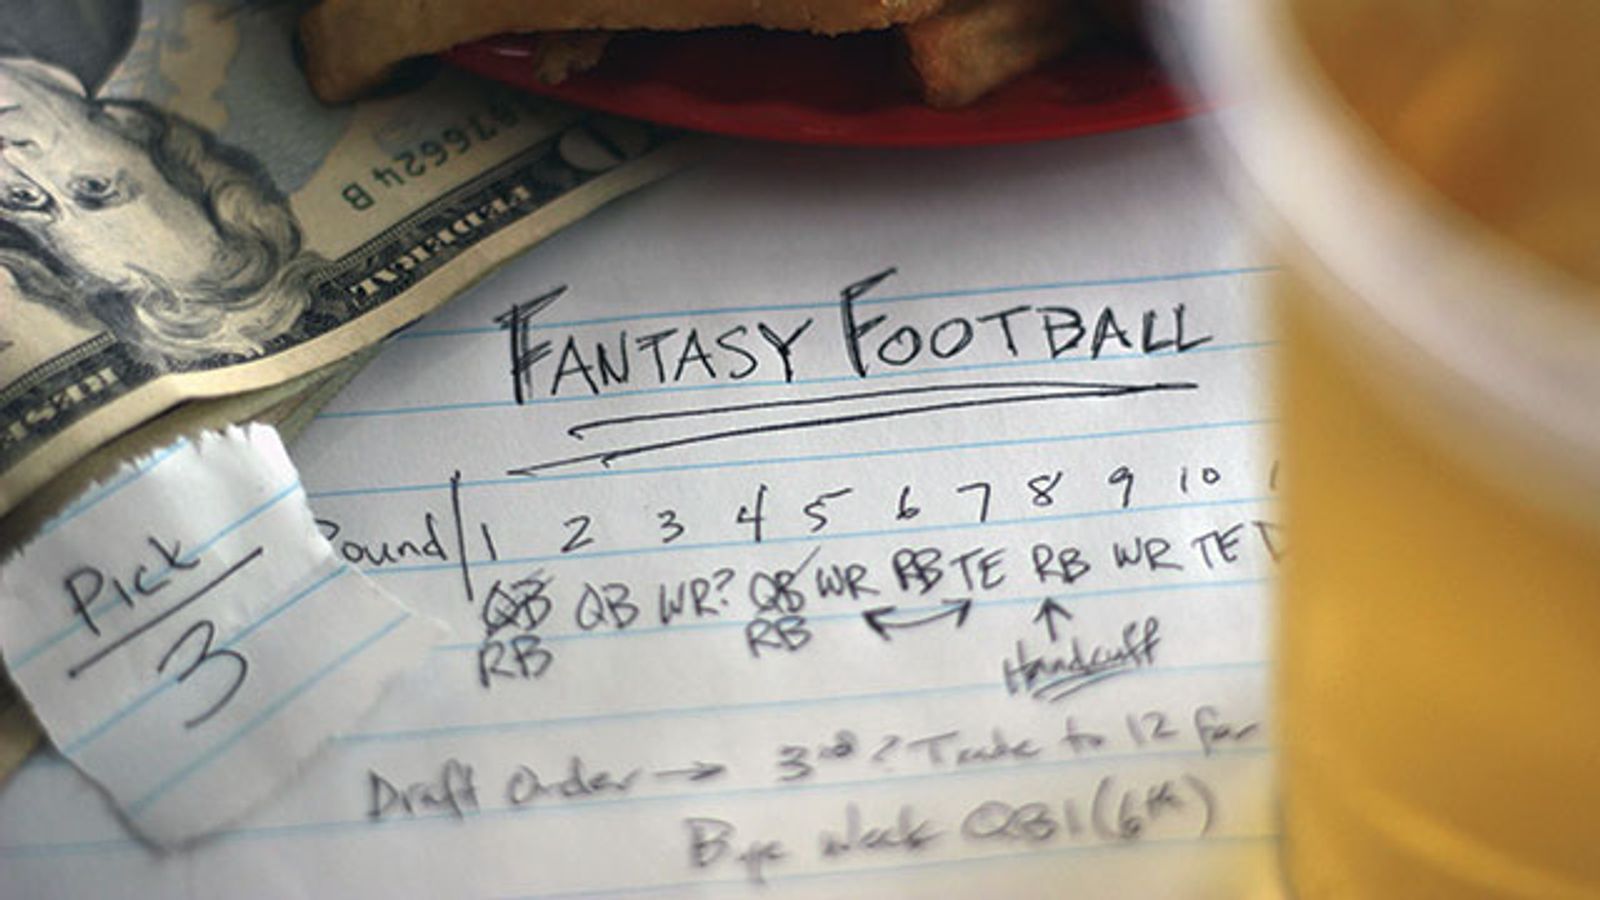 876624 B
FEDERAL RESE
FANTASY FOOTBALL
Pick
3
Round 1 2 3 4 5 6 7 8 9 10
QB QB WR? QB WR RB TE RB WR TE
RB RB
Handcuff
Draft Order → 3rd? Trade to 12 for
Bye week QB1 (6th)